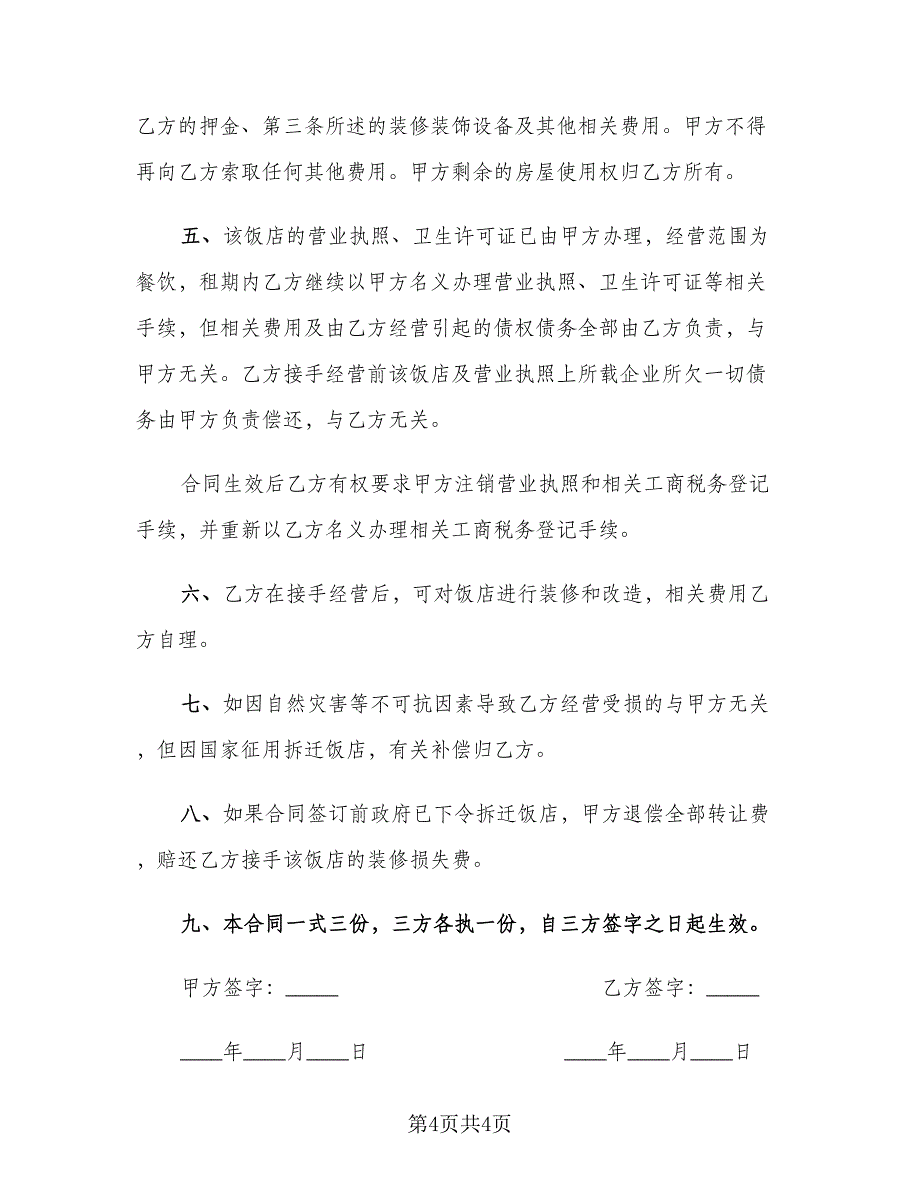 乙方的押金、第三条所述的装修装饰设备及其他相关费用。甲方不得
再向乙方索取任何其他费用。甲方剩余的房屋使用权归乙方所有。
五、该饭店的营业执照、卫生许可证已由甲方办理，经营范围为
餐饮，租期内乙方继续以甲方名义办理营业执照、卫生许可证等相关
手续，但相关费用及由乙方经营引起的债权债务全部由乙方负责，与
甲方无关。乙方接手经营前该饭店及营业执照上所载企业所欠一切债
务由甲方负责偿还，与乙方无关。
合同生效后乙方有权要求甲方注销营业执照和相关工商税务登记
手续，并重新以乙方名义办理相关工商税务登记手续。
六、乙方在接手经营后，可对饭店进行装修和改造，相关费用乙
方自理。
七、如因自然灾害等不可抗因素导致乙方经营受损的与甲方无关
，但因国家征用拆迁饭店，有关补偿归乙方。
八、如果合同签订前政府已下令拆迁饭店，甲方退偿全部转让费
，赔还乙方接手该饭店的装修损失费。
九、本合同一式三份，三方各执一份，自三方签字之日起生效。
甲方签字：_____ 乙方签字：_____
____年____月____日 ____年____月____日
第4页共4页